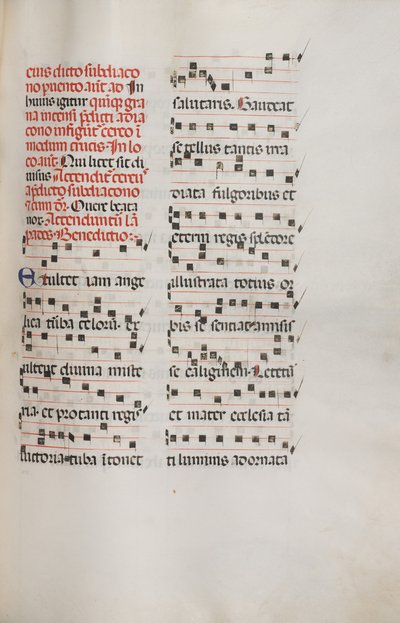 cuis dicto subdiaco
no
ad In
huius igitur quīqȝ gra
na incensi
a dia
cono cereo ī
medium crucis In lo
co Qui licet sit di
uisus Accendit cereū
a subdiacono
Quere beata
nox Accenduntur lā
pades Benedictio
Exultet iam ange
lica turba celorū ex
ultent diuina miste
ria et pro tanti regis
uictoria tuba ītonet
salutaris Gaudeat
se tellus tantis irra
diata fulgoribus et
eterni regis splendore
illustrata totius or
bis se sentiat amisis
se caliginem Letetur
et mater ecclesia tā
ti luminis adornata